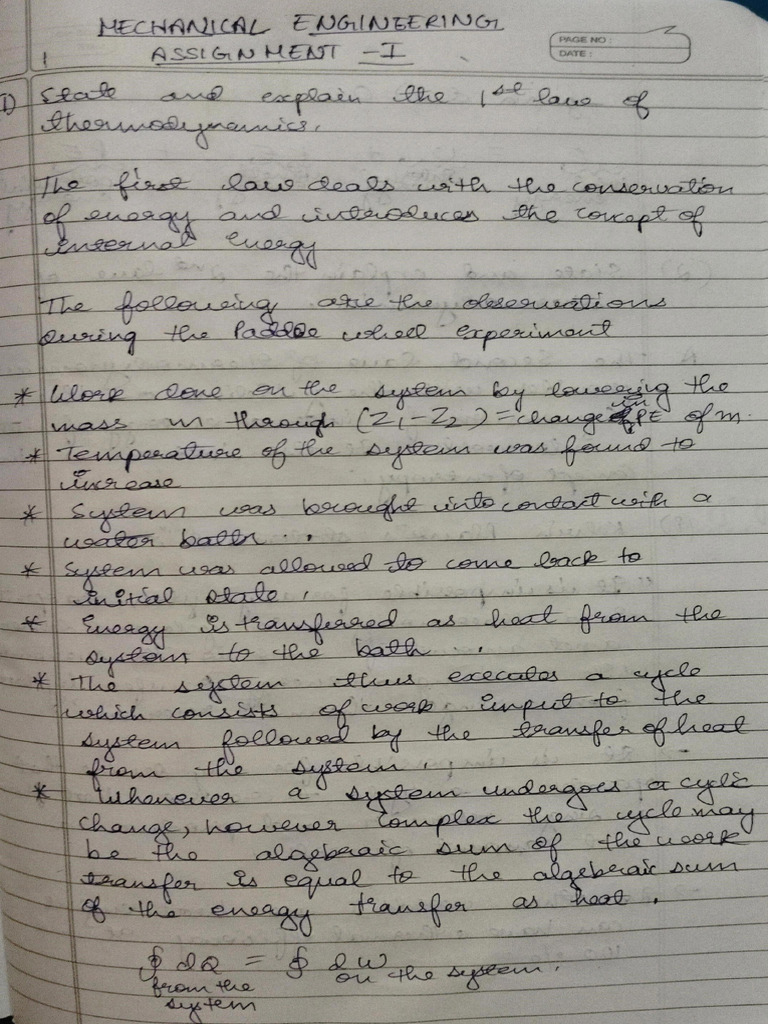 MECHANICAL ENGINEERING
ASSIGNMENT - I
PAGE NO :
DATE :
1) State and explain the 1st law of
thermodynamics.
The first law deals with the conservation
of energy and introduces the concept of
internal energy
The following are the observations
during the Paddle wheel experiment
* Work done on the system by lowering the
mass m through (Z1-Z2) = change in PE of m.
* Temperature of the system was found to
increase
* System was brought into contact with a
water bath.
* System was allowed to come back to
initial state.
* Energy is transferred as heat from the
system to the bath.
* The system thus executes a cycle
which consists of work input to the
system followed by the transfer of heat
from the system.
* Whenever a system undergoes a cyclic
change, however complex the cycle may
be the algebraic sum of the work
transfer is equal to the algebraic sum
of the energy transfer as heat.
∮ dQ = ∮ dW
from the on the system.
system